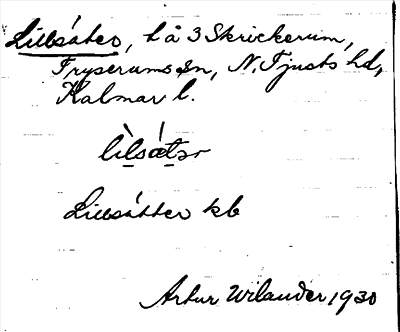 Lillsäter, l å 3 Skrickerum,
Fryserums sn, N. Tjusts hd,
Kalmar l.
lìlsǽtər
Lillsätter kb
Artur Wilander 1930